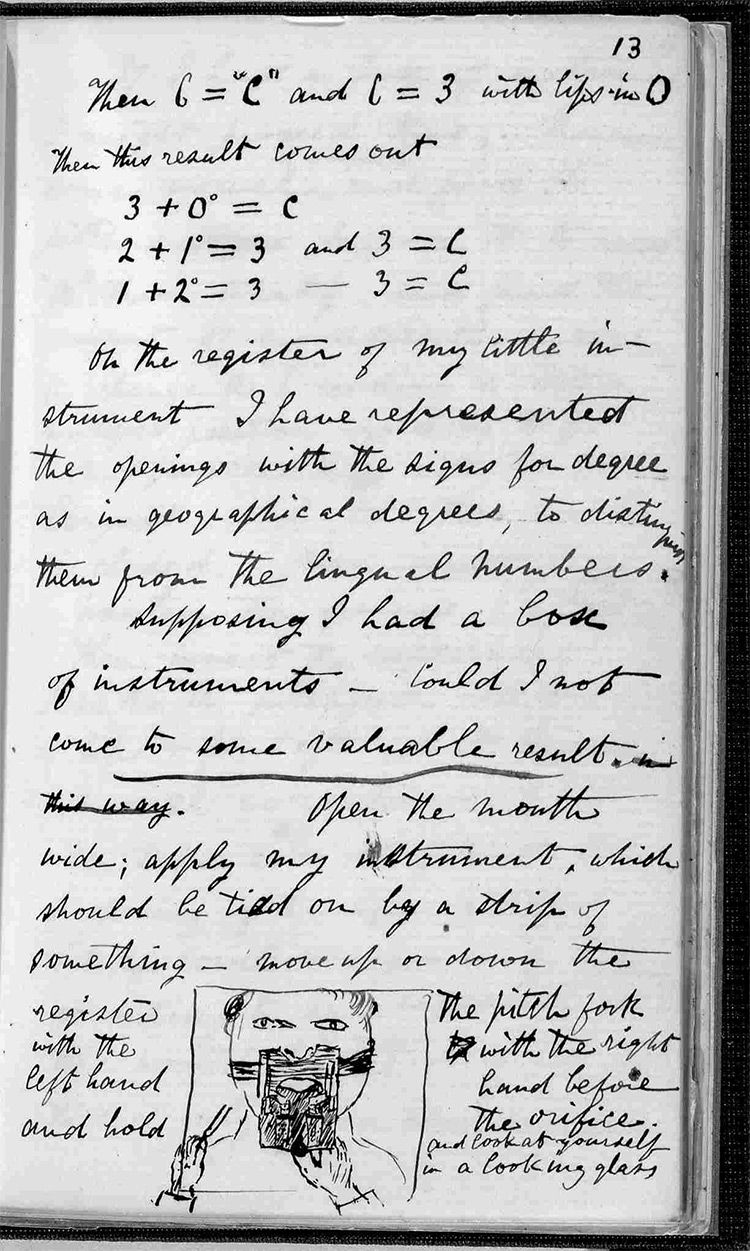 13
Then C = "C" and C = 3 with lips in O
Then this result comes out
3 + 0° = C
2 + 1° = 3 and 3 = C
1 + 2° = 3 — 3 = C
On the register of my little in-
strument I have represented
the openings with the signs for degree
as in geographical degrees, to distinguish
them from the lingual numbers.
Supposing I had a box
of instruments — Could I not
come to some valuable result. in
this way. Open the mouth
wide; apply my instrument, which
should be tied on by a strip of
something — move up or down the
register
with the
left hand
and hold
the pitch fork
with the right
hand before
the orifice.
and look at yourself
in a looking glass